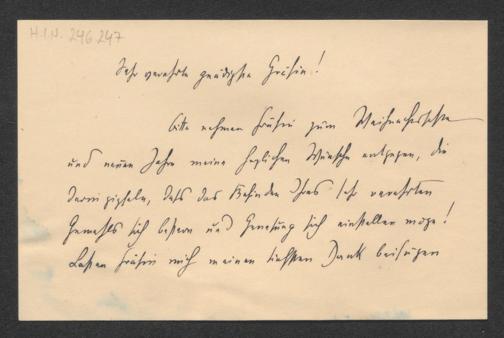 H.I.N. 246.247
Sehr verehrte gnädigste Gräfin!
bitte nehmen Gräfin zum Weihnachtsfeste
und neuen Jahre meine herzlichen Wünsche entgegen, die
darin gipfeln, daß das Befinden Ihres sehr verehrten
Gemahls sich bessern und Genesung sich einstellen möge!
Lassen Gräfin mich meinen tiefsten Dank beifügen